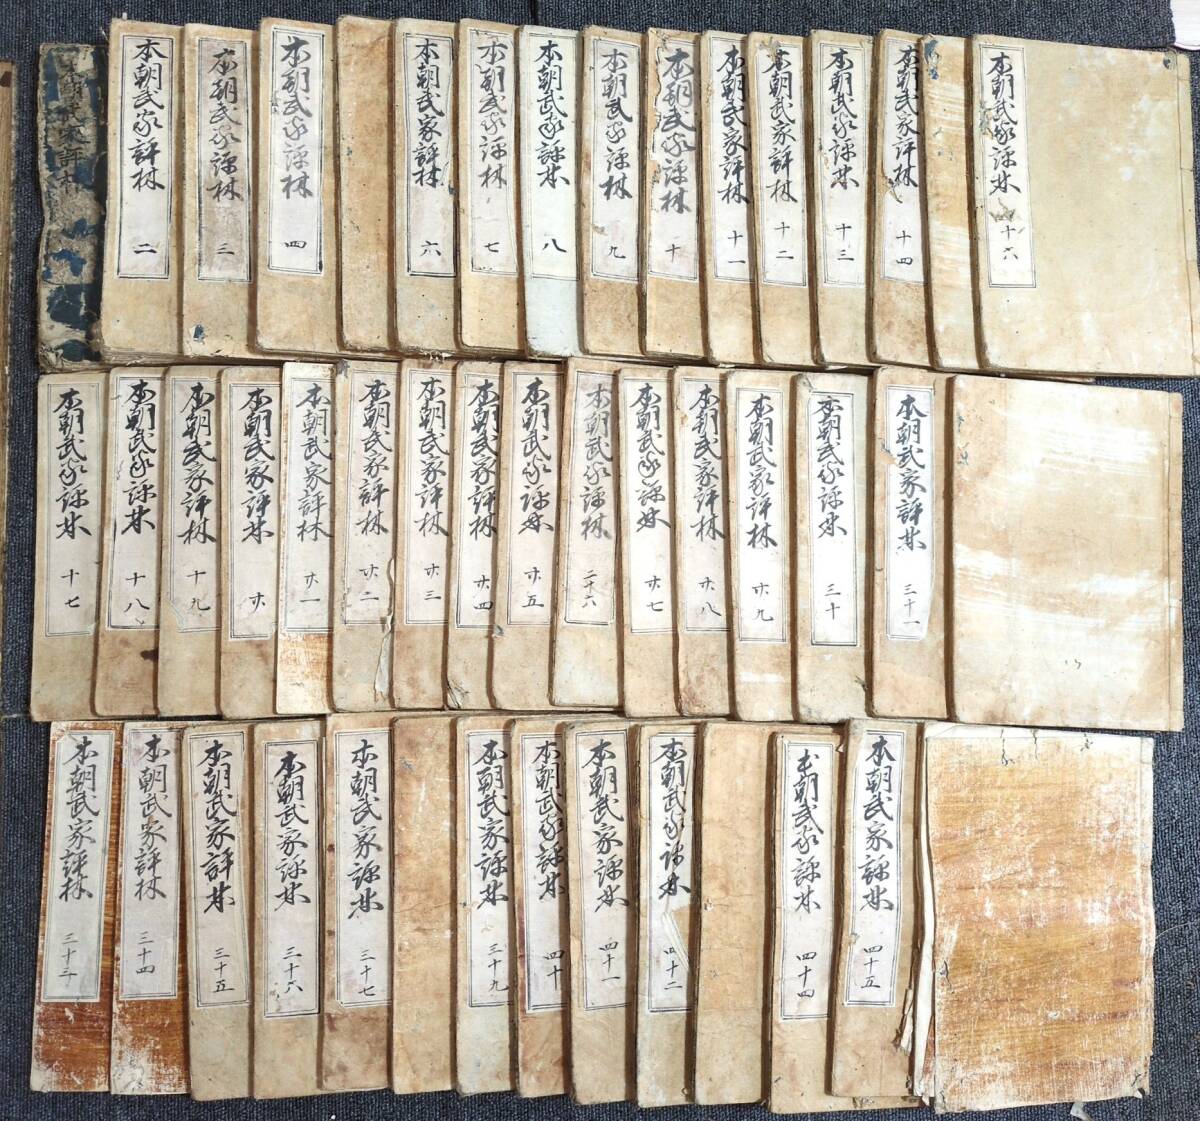 本朝武家評林
本朝武家評林 二
本朝武家評林 三
本朝武家評林 四
本朝武家評林 六
本朝武家評林 七
本朝武家評林 八
本朝武家評林 九
本朝武家評林 十
本朝武家評林 十一
本朝武家評林 十二
本朝武家評林 十三
本朝武家評林 十四
本朝武家評林 十六
本朝武家評林 十七
本朝武家評林 十八
本朝武家評林 十九
本朝武家評林 廿
本朝武家評林 廿一
本朝武家評林 廿二
本朝武家評林 廿三
本朝武家評林 廿四
本朝武家評林 廿五
本朝武家評林 二十六
本朝武家評林 廿七
本朝武家評林 廿八
本朝武家評林 廿九
本朝武家評林 三十
本朝武家評林 三十一
本朝武家評林 三十三
本朝武家評林 三十四
本朝武家評林 三十五
本朝武家評林 三十六
本朝武家評林 三十七
本朝武家評林 三十九
本朝武家評林 四十
本朝武家評林 四十一
本朝武家評林 四十二
本朝武家評林 四十四
本朝武家評林 四十五